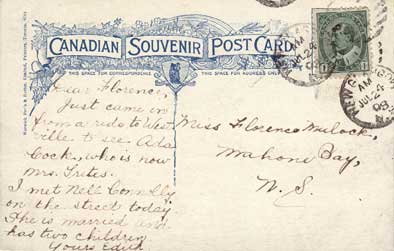 CANADIAN SOUVENIR POST CARD
THIS SPACE FOR CORRESPONDENCE
THIS SPACE FOR ADDRESS ONLY
Dear Florence,
Just came in
from a ride to West
ville to see Ada
Cock, who is now
Mrs.
I met Nell Connolly
on the street today
She is married and
has two children
Yours Edith
Miss Florence Mulock,
Mahone Bay,
N. S.
NEW
AM
JU 24
08
N